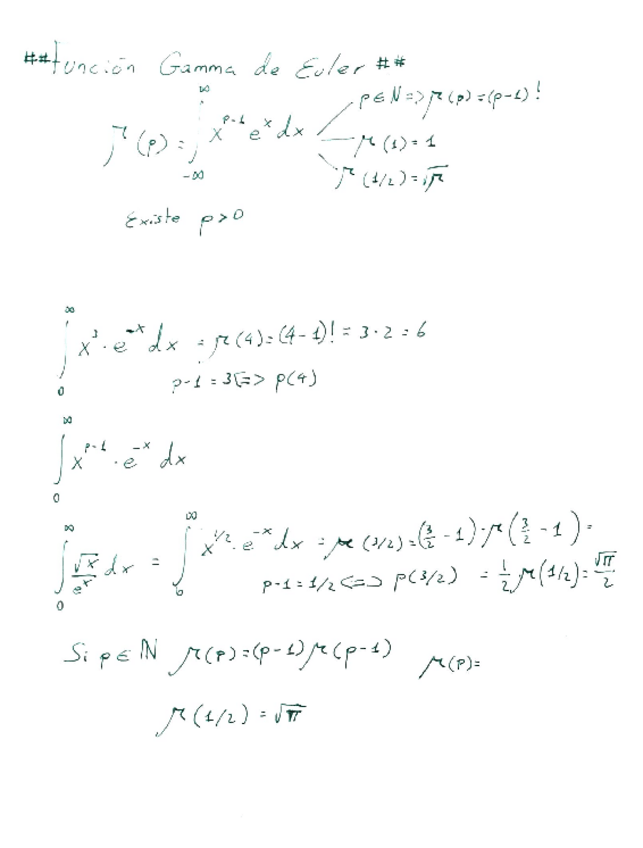 ##Función Gamma de Euler##
Γ(p) = ∫_{-∞}^{∞} x^{p-1} e^x dx
p ∈ N => Γ(p) = (p-1)!
Γ(1) = 1
Γ(1/2) = √π
Existe p>0
∫_0^∞ x^3 · e^{-x} dx = Γ(4) = (4-1)! = 3·2 = 6
p-1 = 3 <=> p(4)
∫_0^∞ x^{p-1} · e^{-x} dx
∫_0^∞ √x/e^x dx = ∫_0^∞ x^{1/2} · e^{-x} dx = Γ(3/2) = (3/2 - 1)·Γ(3/2 - 1) =
p-1 = 1/2 <=> p(3/2) = 1/2 Γ(1/2) = √π/2
Si p ∈ N Γ(p) = (p-1) Γ(p-1) Γ(p) =
Γ(1/2) = √π